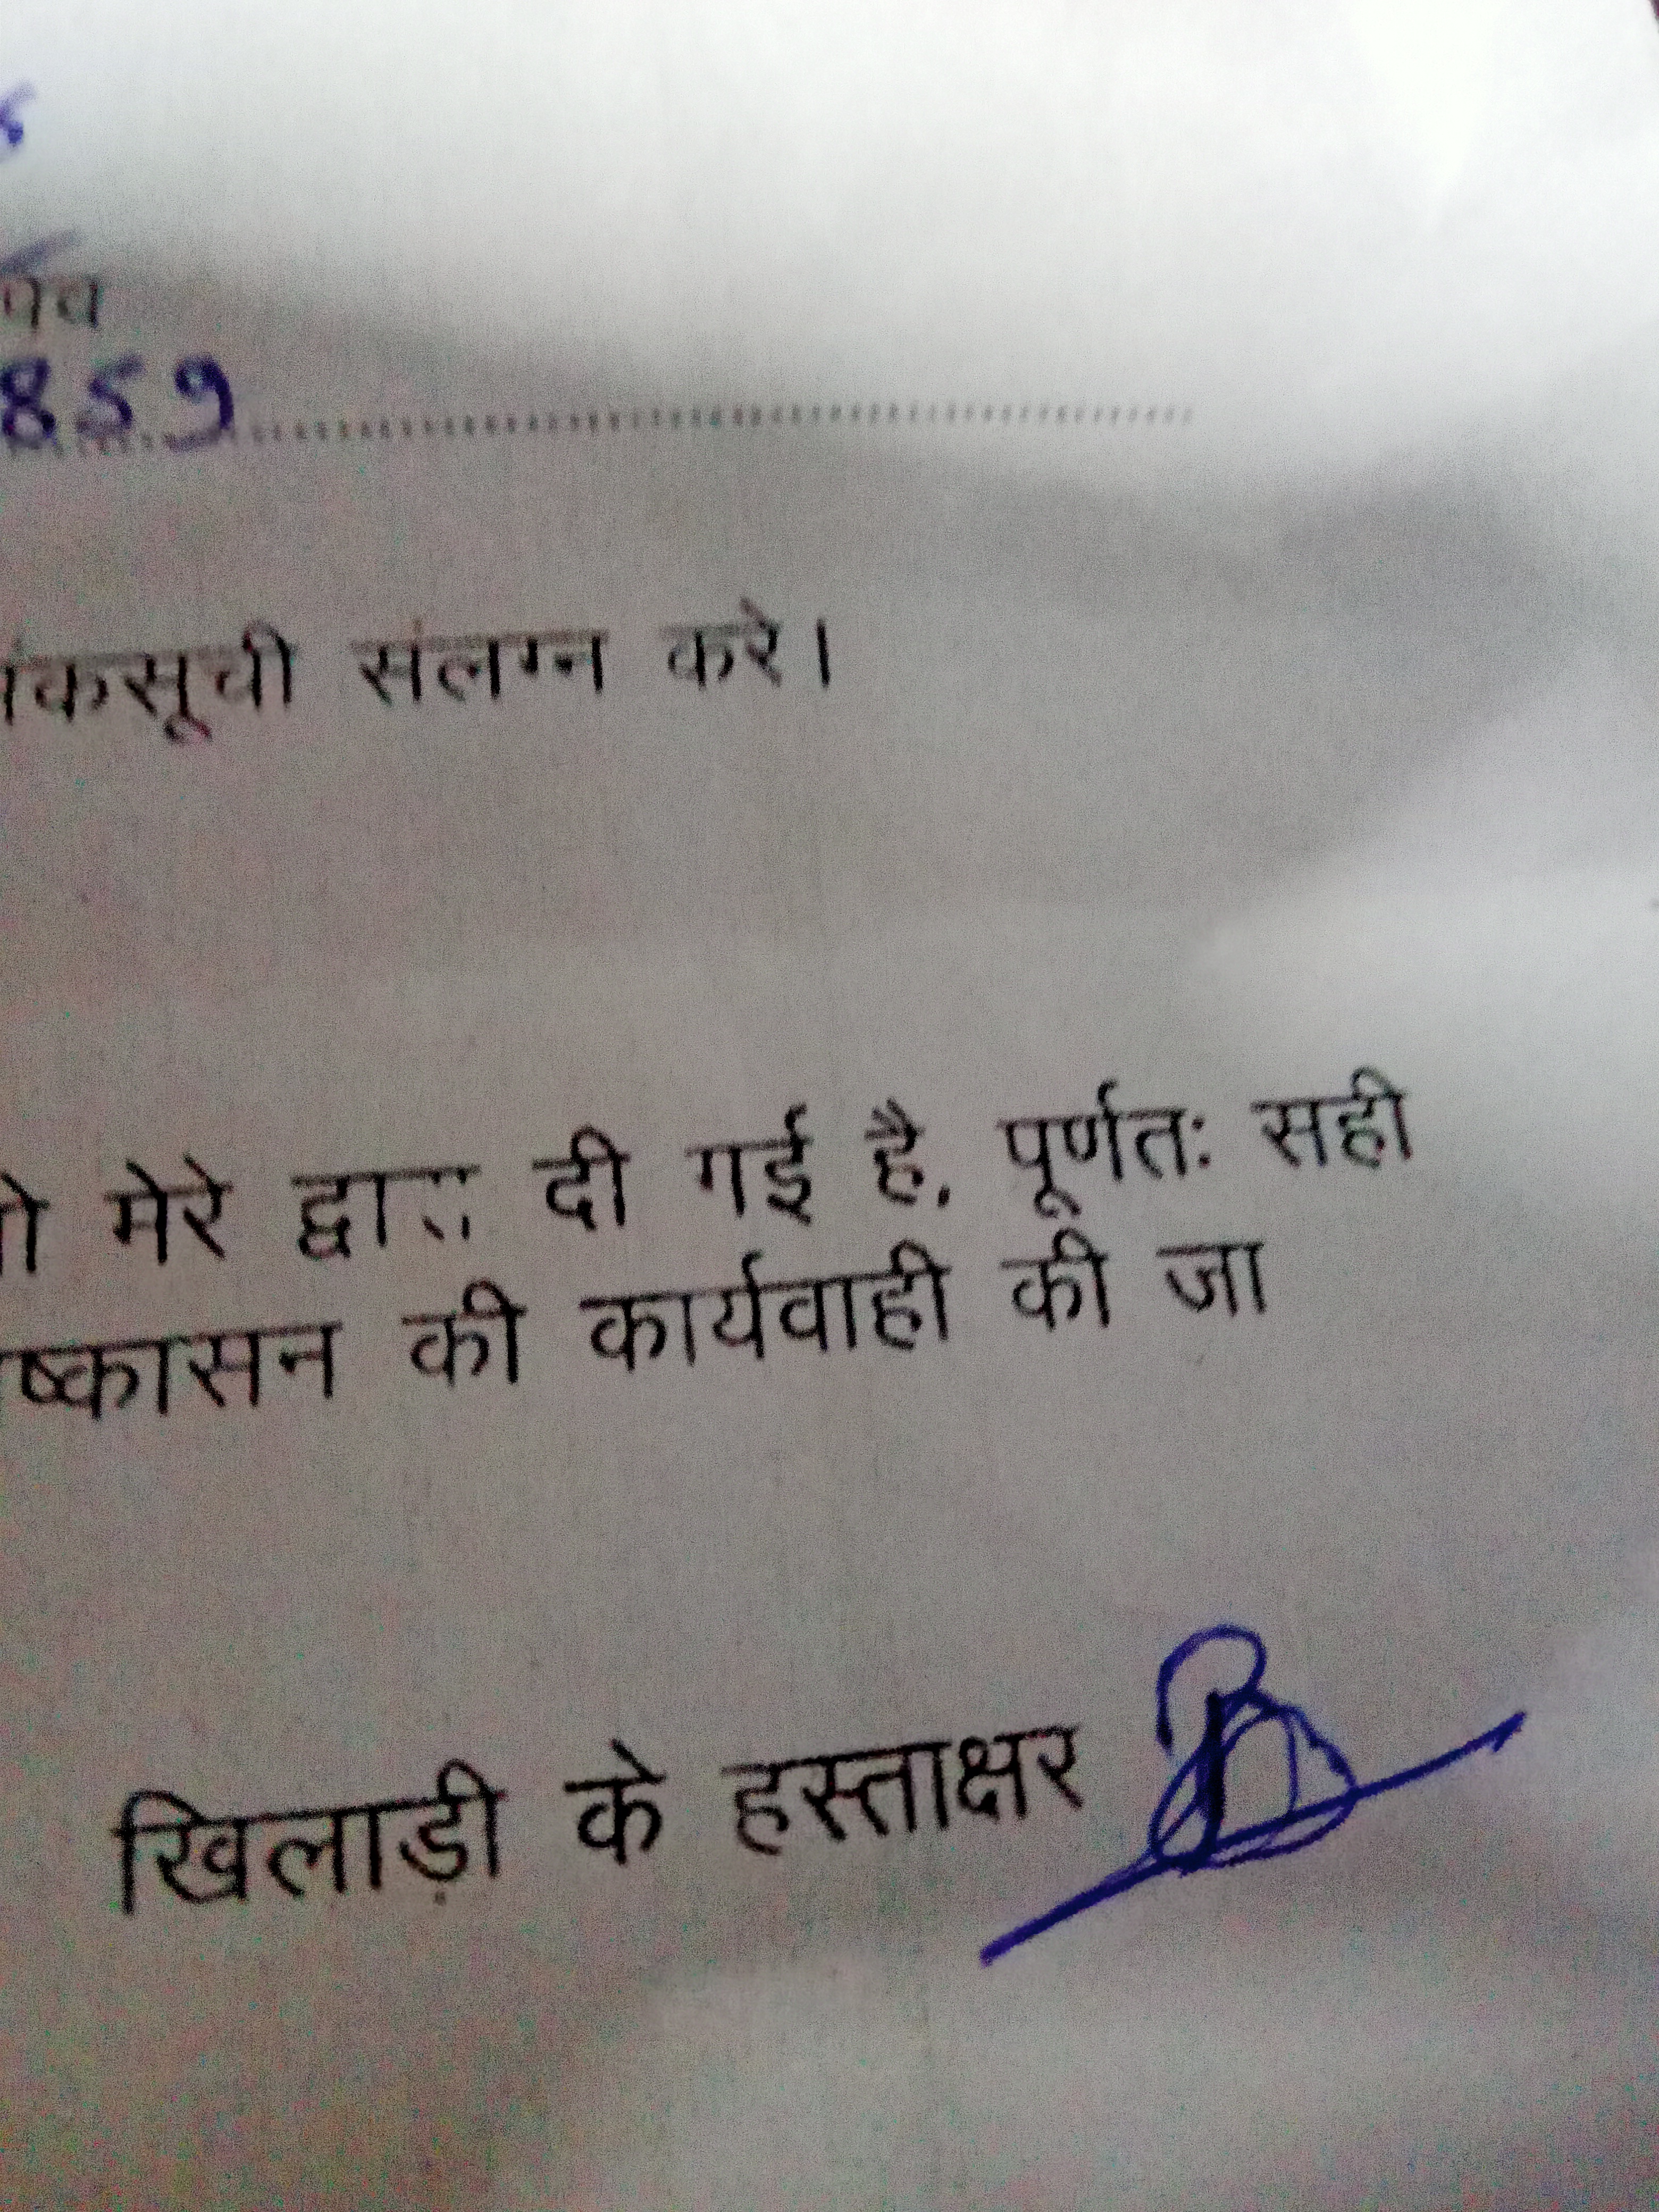 859
ंकसूची संलग्न करे।
मेरे द्वारा दी गई है, पूर्णतः सही
ष्कासन की कार्यवाही की जा
खिलाड़ी के हस्ताक्षर